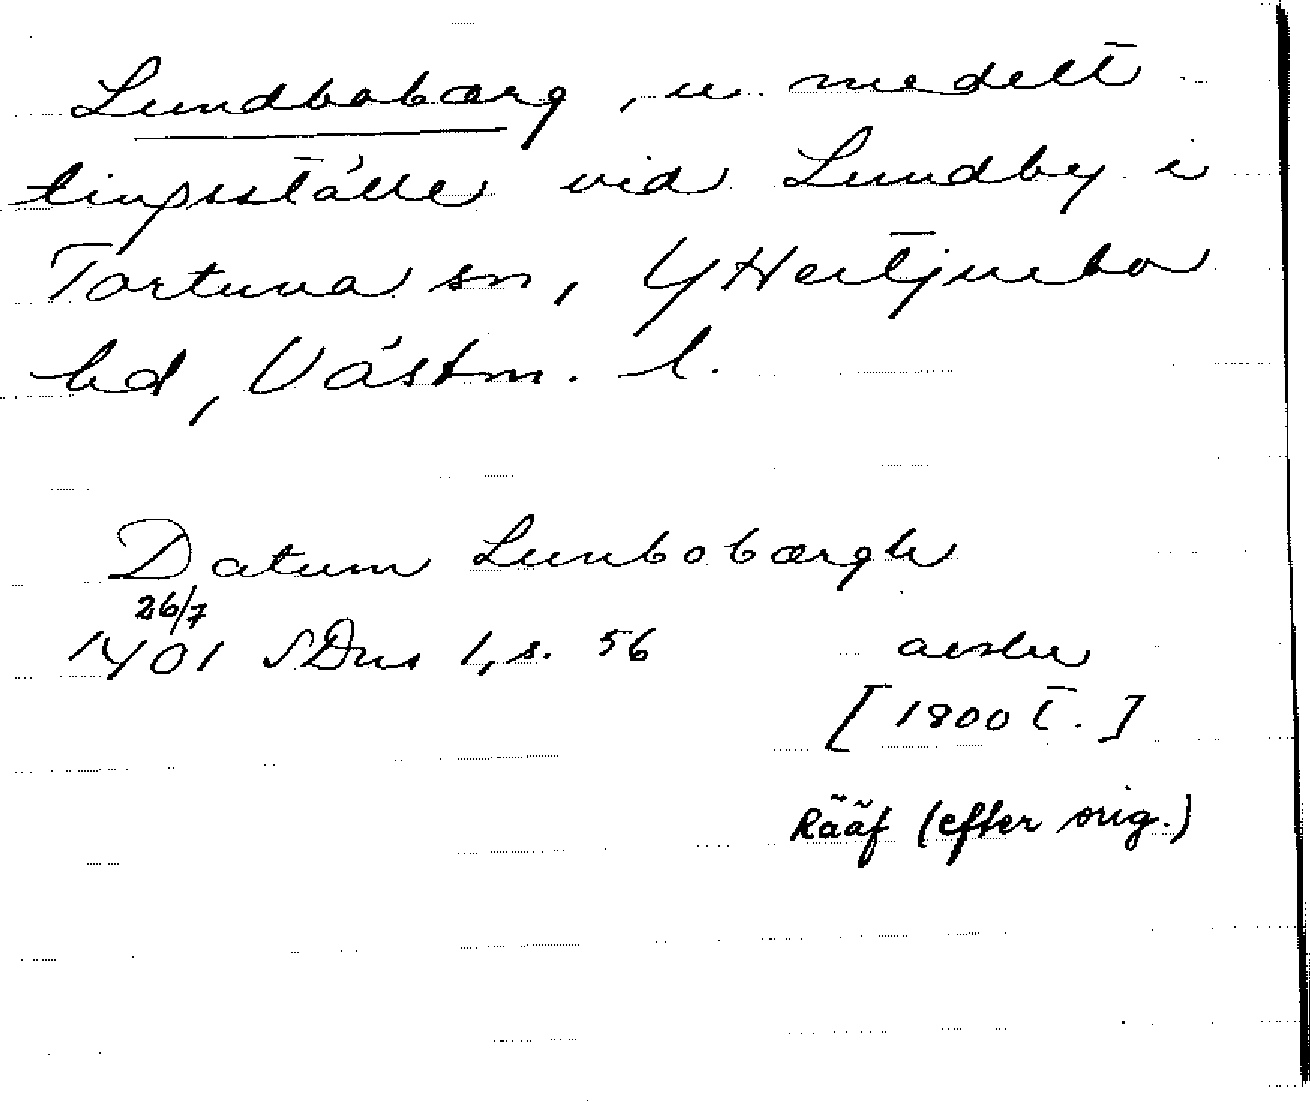 Lundbobærg, u. medelt
tingsställe vid Lundby i
Tortuna sn, Yttertjurbo
hd, Västm. l.
Datum Lunbobærgh
26/7
1401 SDns 1, s. 56 avskr
[1800 t.]
Rääf (efter orig.)